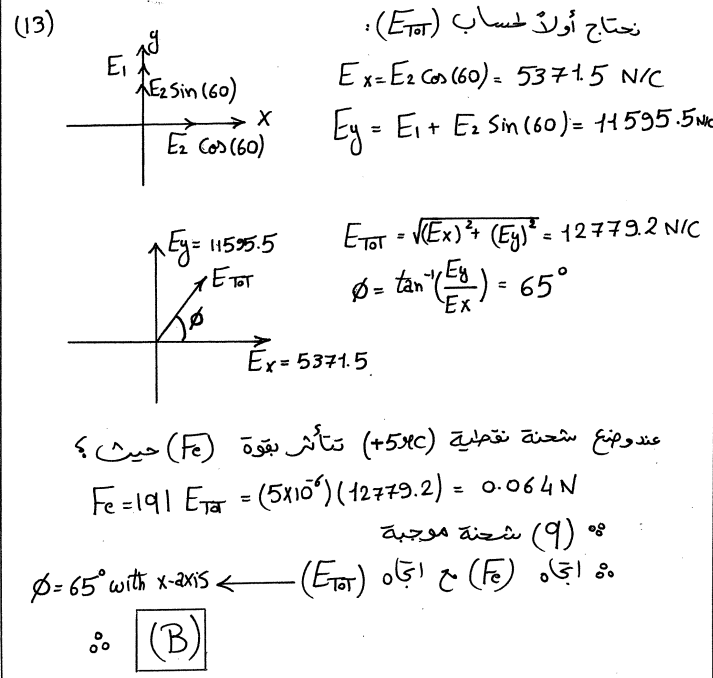 (13)
نحتاج أولاً لحساب (E_TOT):
y
E₁
E₂ Sin(60)
x
E₂ Cos(60)
Ex = E₂ Cos(60) = 5371.5 N/C
Ey = E₁ + E₂ Sin(60) = 11595.5 N/C
Ey = 11595.5
E_TOT
ø
Ex = 5371.5
E_TOT = √(Ex)² + (Ey)² = 12779.2 N/C
ø = tan⁻¹(Ey/Ex) = 65°
عند وضع شحنة نقطية (+5μC) تتأثر بقوة (Fe) حيث ؛
Fe = |q| E_TOT = (5×10⁻⁶)(12779.2) = 0.064 N
∵ (q) شحنة موجبة
∴ اتجاه (Fe) مع اتجاه (E_TOT) ⟵ ø = 65° with x-axis
∴ (B)